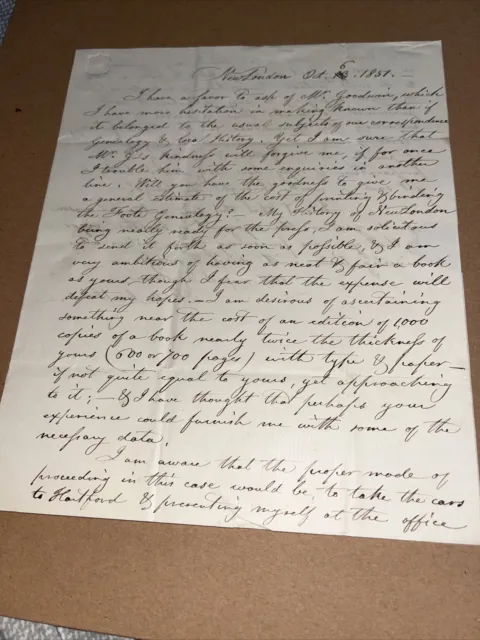 New London Oct. 6. 1851.
I have a favor to ask of Mr. Goodwin, which
I have more hesitation in making known than if
it belonged to the usual subjects of our correspondence
Genealogy & local History. Yet I am sure that
Mr. G's kindness will forgive me, if for once
I trouble him with some enquiries in another
line. Will you have the goodness to give me
a general estimate of the cost of printing & binding
the Foote Genealogy? — My History of New London
being nearly ready for the press, I am solicitous
to send it forth as soon as possible, & I am
very ambitious of having as neat & fair a book
as yours, though I fear that the expense will
defeat my hopes. — I am desirous of ascertaining
something near the cost of an edition of 1,000
copies of a book nearly twice the thickness of
yours (600 or 700 pages) with type & paper —
if not quite equal to yours, yet approaching
to it; — & I have thought that perhaps your
experience could furnish me with some of the
necessary data.
I am aware that the proper mode of
proceeding in this case would be, to take the cars
to Hartford & presenting myself at the office